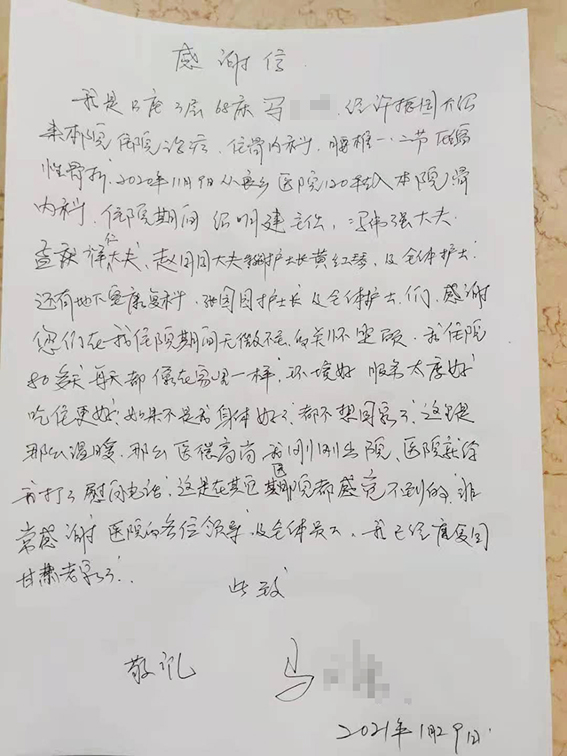 感谢信
我是B座3层68床马 经许振国大夫
来本院住院治疗,住骨内科,腰椎一、二节压缩
性骨折,2020年11月9日从 医院120转入本院骨
内科,住院期间 明建主任,冯伟强大夫
孟庆祥大夫、赵团团大夫 护士长黄红琴,及全体护士
还有地下室康复科,张园园护士长及全体护士们,感谢
您们在我住院期间无微不至的关怀照顾,我住院
80多天每天都像在家里一样,环境好服务太度好
吃住更好,如果不是我身体好了都不想回家了,这里是
那么温暖,那么医德高尚我刚刚出院,医院就给
我打了慰问电话,这是在其它 医院都感觉不到的,非
常感谢医院的各位领导及全体员工,我已经康复回
甘肃老家了.
此致
敬礼 马
2021年1月29日.